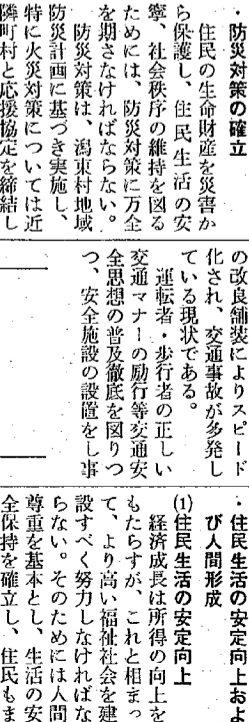 ・防災対策の確立
　住民の生命財産を災害か
ら保護し、住民生活の安
寧、社会秩序の維持を図る
ためには、防災対策に万全
を期さなければならない。
　防災対策は、潟東村地域
防災計画に基づき実施し、
特に火災対策については近
隣町村と応援協定を締結し
の改良舗装によりスピード
化され、交通事故が多発し
ている現状である。
　運転者・歩行者の正しい
交通マナーの励行等交通安
全思想の普及徹底を図りつ
つ、安全施設の設置をし事
・住民生活の安定向上およ
び人間形成
(1)住民生活の安定向上
　経済成長は所得の向上を
もたらすが、これと相まっ
て、より高い福祉社会を建
設すべく努力しなければな
らない。そのためには人間
尊重を基本とし、生活の安
全保持を確立し、住民もま